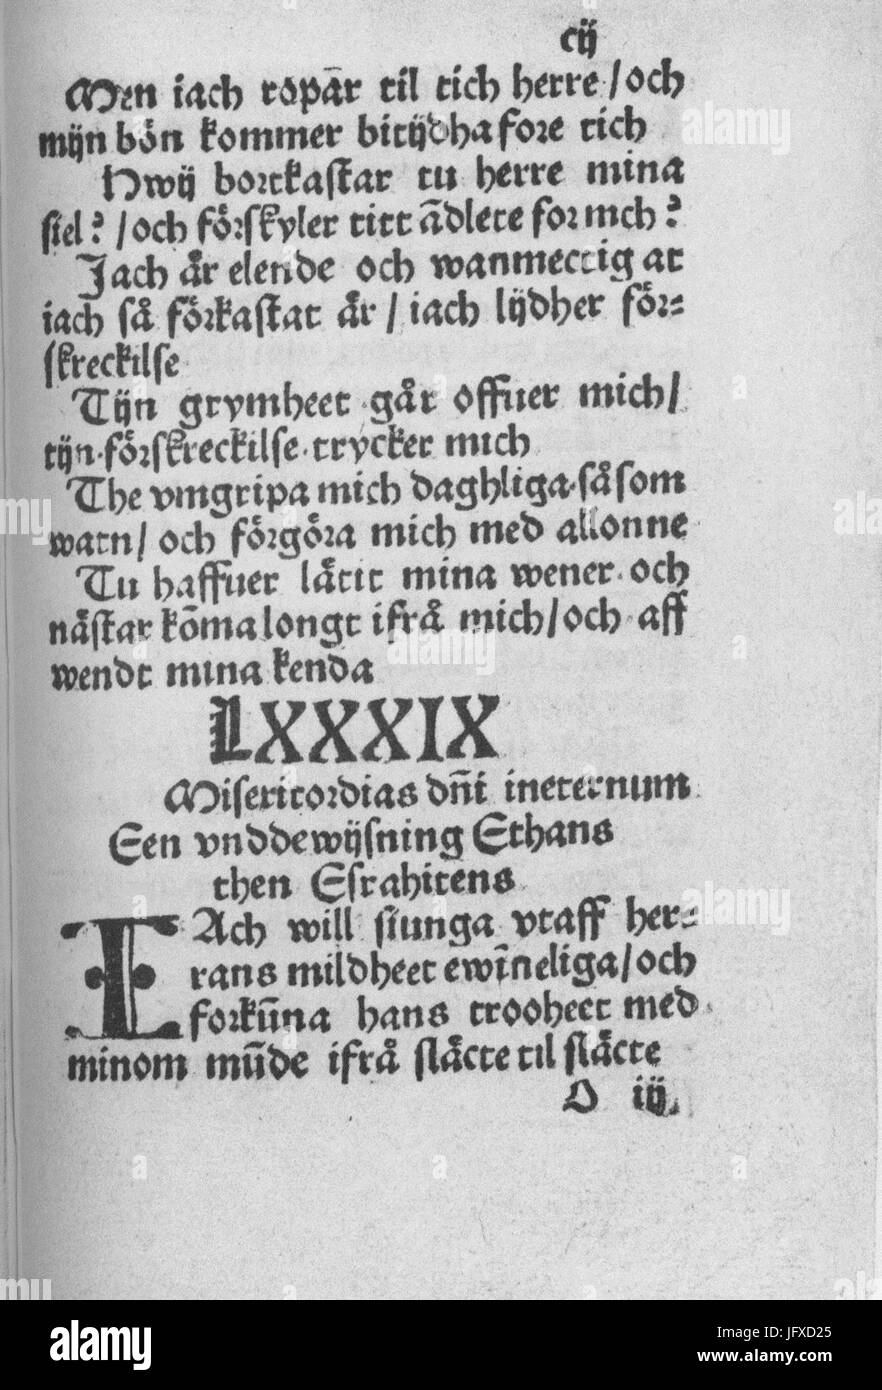 cij
Men iach ropar til tich herre / och
mijn bön kommer bitijdha fore tich
Hwij bortkastar tu herre mina
siel? / och förskyler titt ādlete for mich?
Jach är elende och wanmectig at
iach så förkastat är / iach lijdher för⸗
skreckilse
Tijn grymheet går offuer mich /
tijn förskreckilse trycker mich
The vmgripa mich daghliga såsom
watn / och förgöra mich med allonne
Tu haffuer lätit mina wener och
nästar kōma longt ifrå mich / och aff
wendt mina kenda
LXXXIX
Misericordias dn̄i ineternum
Een vnddewijsning Ethans
then Esrahitens
IAch will siunga vtaff her⸗
rans mildheet ewīneliga / och
forkūna hans trooheet med
minom mūde ifrå släcte til släcte
O iij.
alamy
a
alamy
Image ID: JFXD25
www.alamy.com